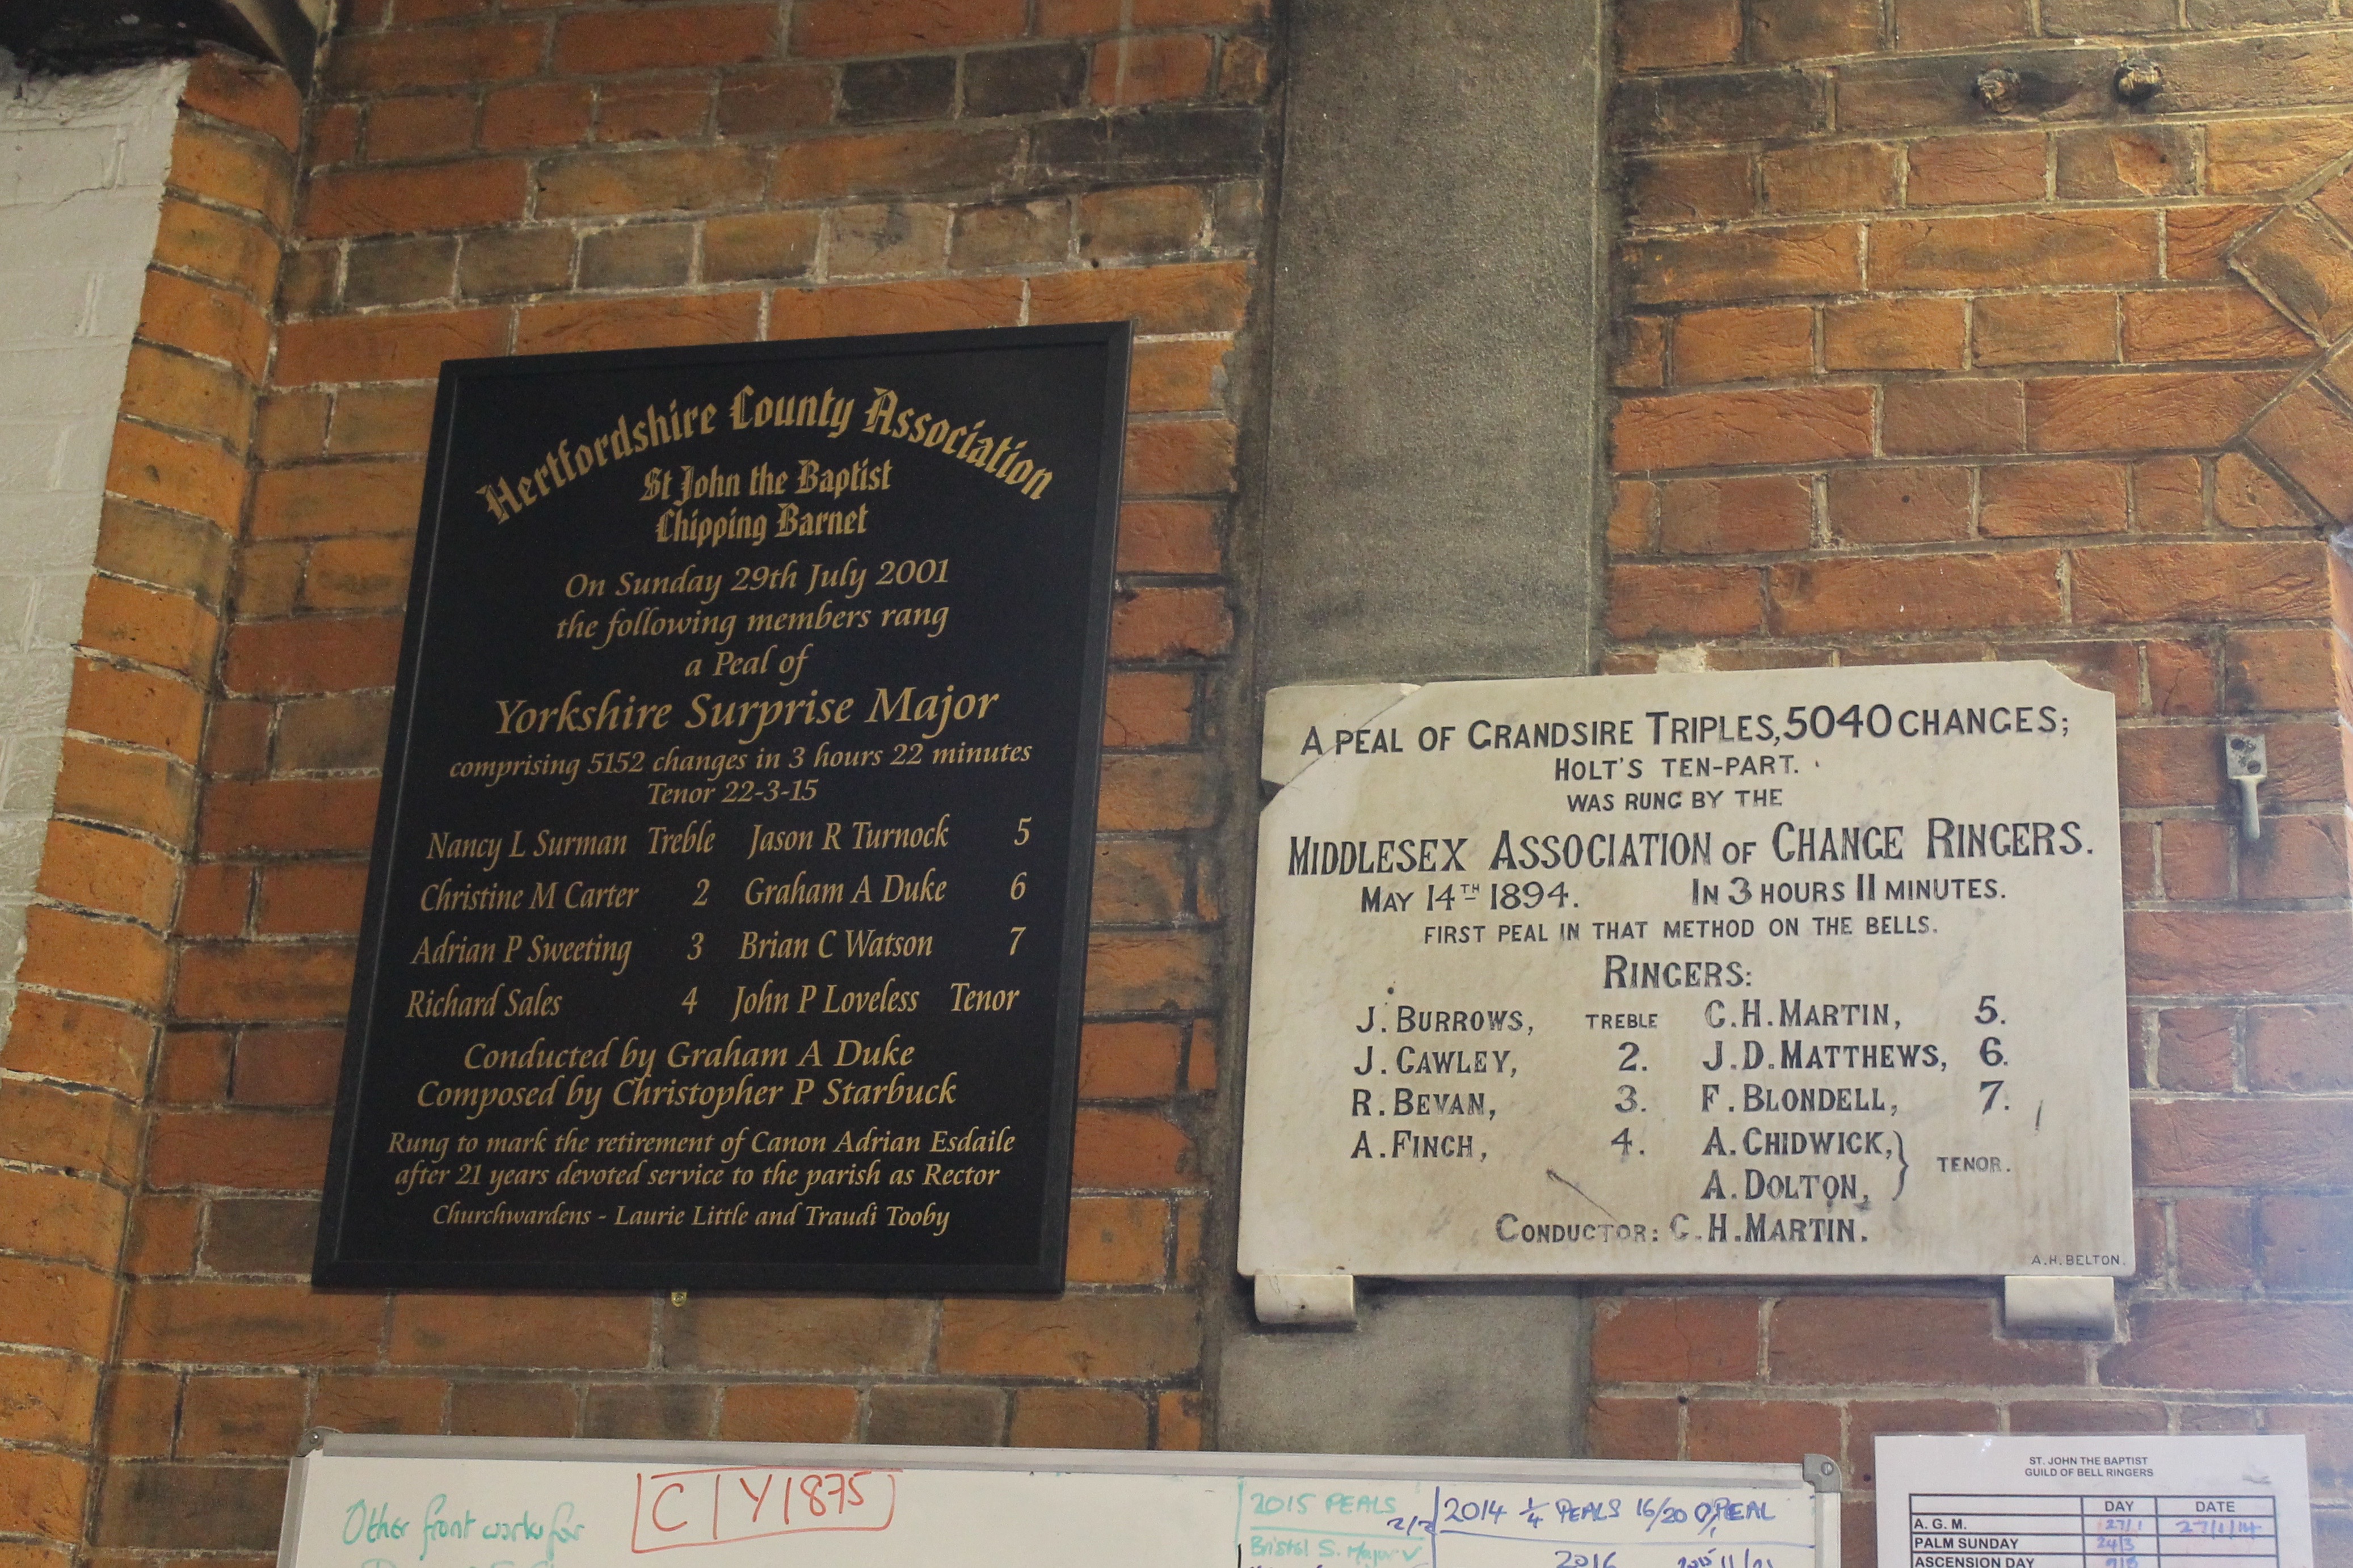 Hertfordshire County Association
St John the Baptist
Chipping Barnet
On Sunday 29th July 2001
the following members rang
a Peal of
Yorkshire Surprise Major
comprising 5152 changes in 3 hours 22 minutes
Tenor 22-3-15
Nancy L Surman Treble Jason R Turnock 5
Christine M Carter 2 Graham A Duke 6
Adrian P Sweeting 3 Brian C Watson 7
Richard Sales 4 John P Loveless Tenor
Conducted by Graham A Duke
Composed by Christopher P Starbuck
Rung to mark the retirement of Canon Adrian Esdaile
after 21 years devoted service to the parish as Rector
Churchwardens - Laurie Little and Traudi Tooby
A PEAL OF GRANDSIRE TRIPLES, 5040 CHANGES;
HOLT'S TEN-PART.
WAS RUNG BY THE
MIDDLESEX ASSOCIATION OF CHANGE RINGERS.
MAY 14TH 1894. IN 3 HOURS 11 MINUTES.
FIRST PEAL IN THAT METHOD ON THE BELLS.
RINGERS:
J. BURROWS, TREBLE C.H. MARTIN, 5.
J. CAWLEY, 2. J.D. MATTHEWS, 6.
R. BEVAN, 3. F. BLONDELL, 7.
A. FINCH, 4. A. CHIDWICK, } TENOR.
A. DOLTON,
CONDUCTOR: C.H. MARTIN.
A.H. BELTON.
Other front works for
C | Y1875
2015 PEALS
Bristol S. Major ✓
2014 ¼ PEALS 16/20 PEAL
2016
ST. JOHN THE BAPTIST
GUILD OF BELL RINGERS
DAY DATE
A. G. M. 27/1 27/1/14
PALM SUNDAY 24/3
ASCENSION DAY